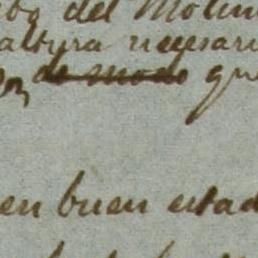 del Molin
altura necesari
de modo qu
en buen estad